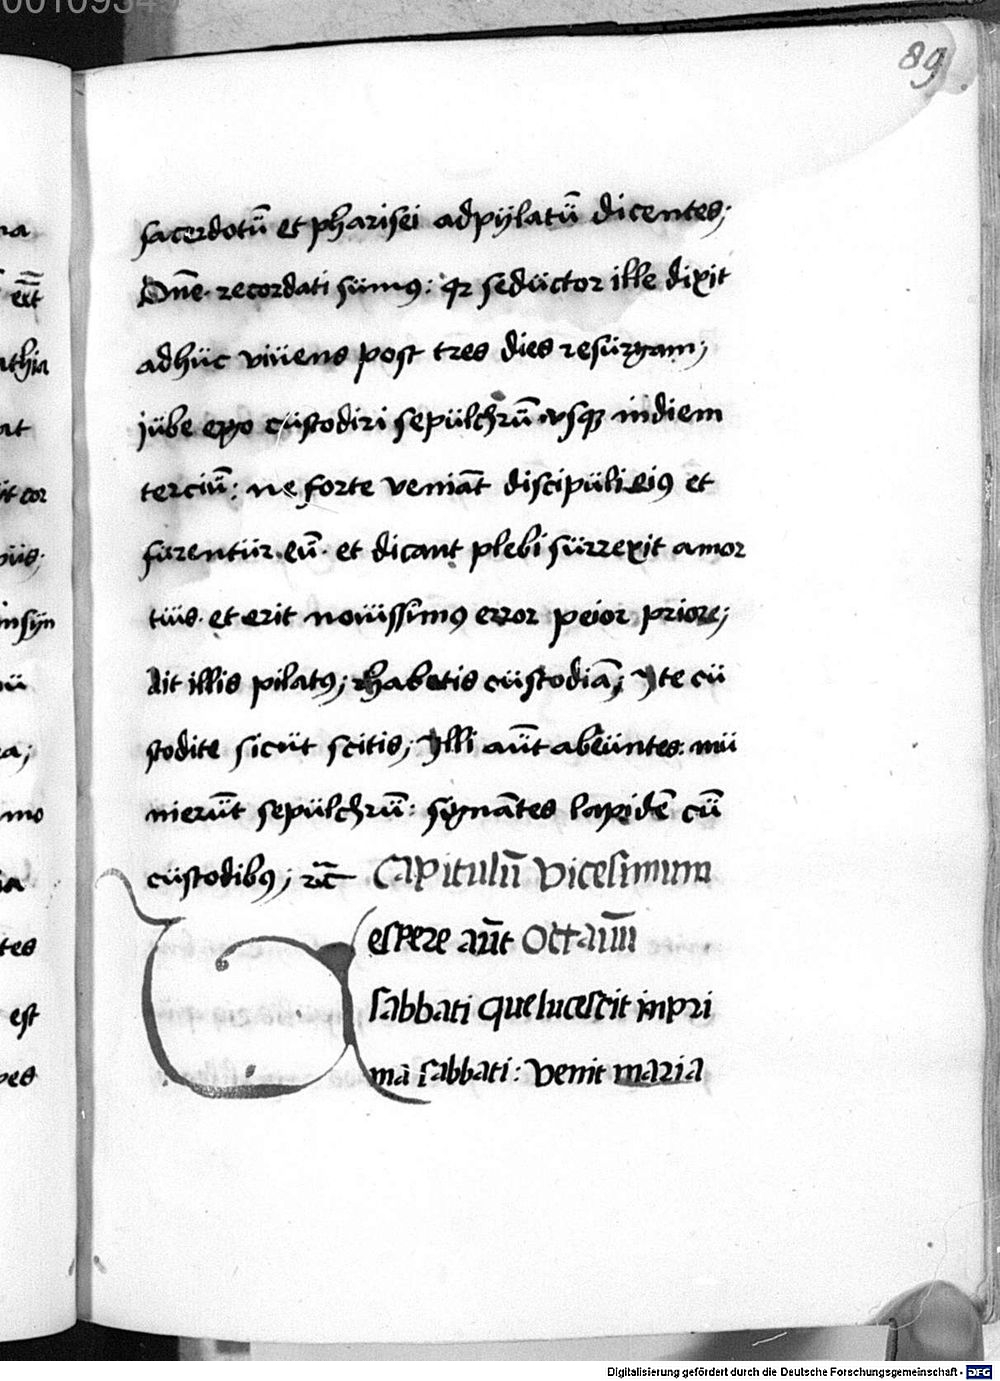 0010934
89
na
ext
athia
at
it cor
pus.
insyn
nū
ra;
mo
ia
tes
est
pes
sacerdotū et pharisei adpÿlatū dicentes;
Dn̄e. recordati sümꝰ: qr sedüctor ille dixit
adhüc viüens post tres dies resürgam;
jübe ergo cüstodiri sepülchrū vsqꝫ indiem
terciū: ne forte veniāt discipüli eiꝰ et
fürentür eū. et dicant plebi sürrexit amor
tüis. et erit noüissimꝰ error peior priore;
Ait illis pilatꝰ; habetis cüstodiā; Yte cü
stodite sicüt scitis; Ylli aūt abeüntes: mü
nierūt sepülchrū: signātes lapidē cū
cüstodibꝰ; rc̄ Capitulū vicesimum
Vespere aūt Octauū
sabbati que lucescit inpri
mā sabbati: venit maria
Digitalisierung gefördert durch die Deutsche Forschungsgemeinschaft - DFG